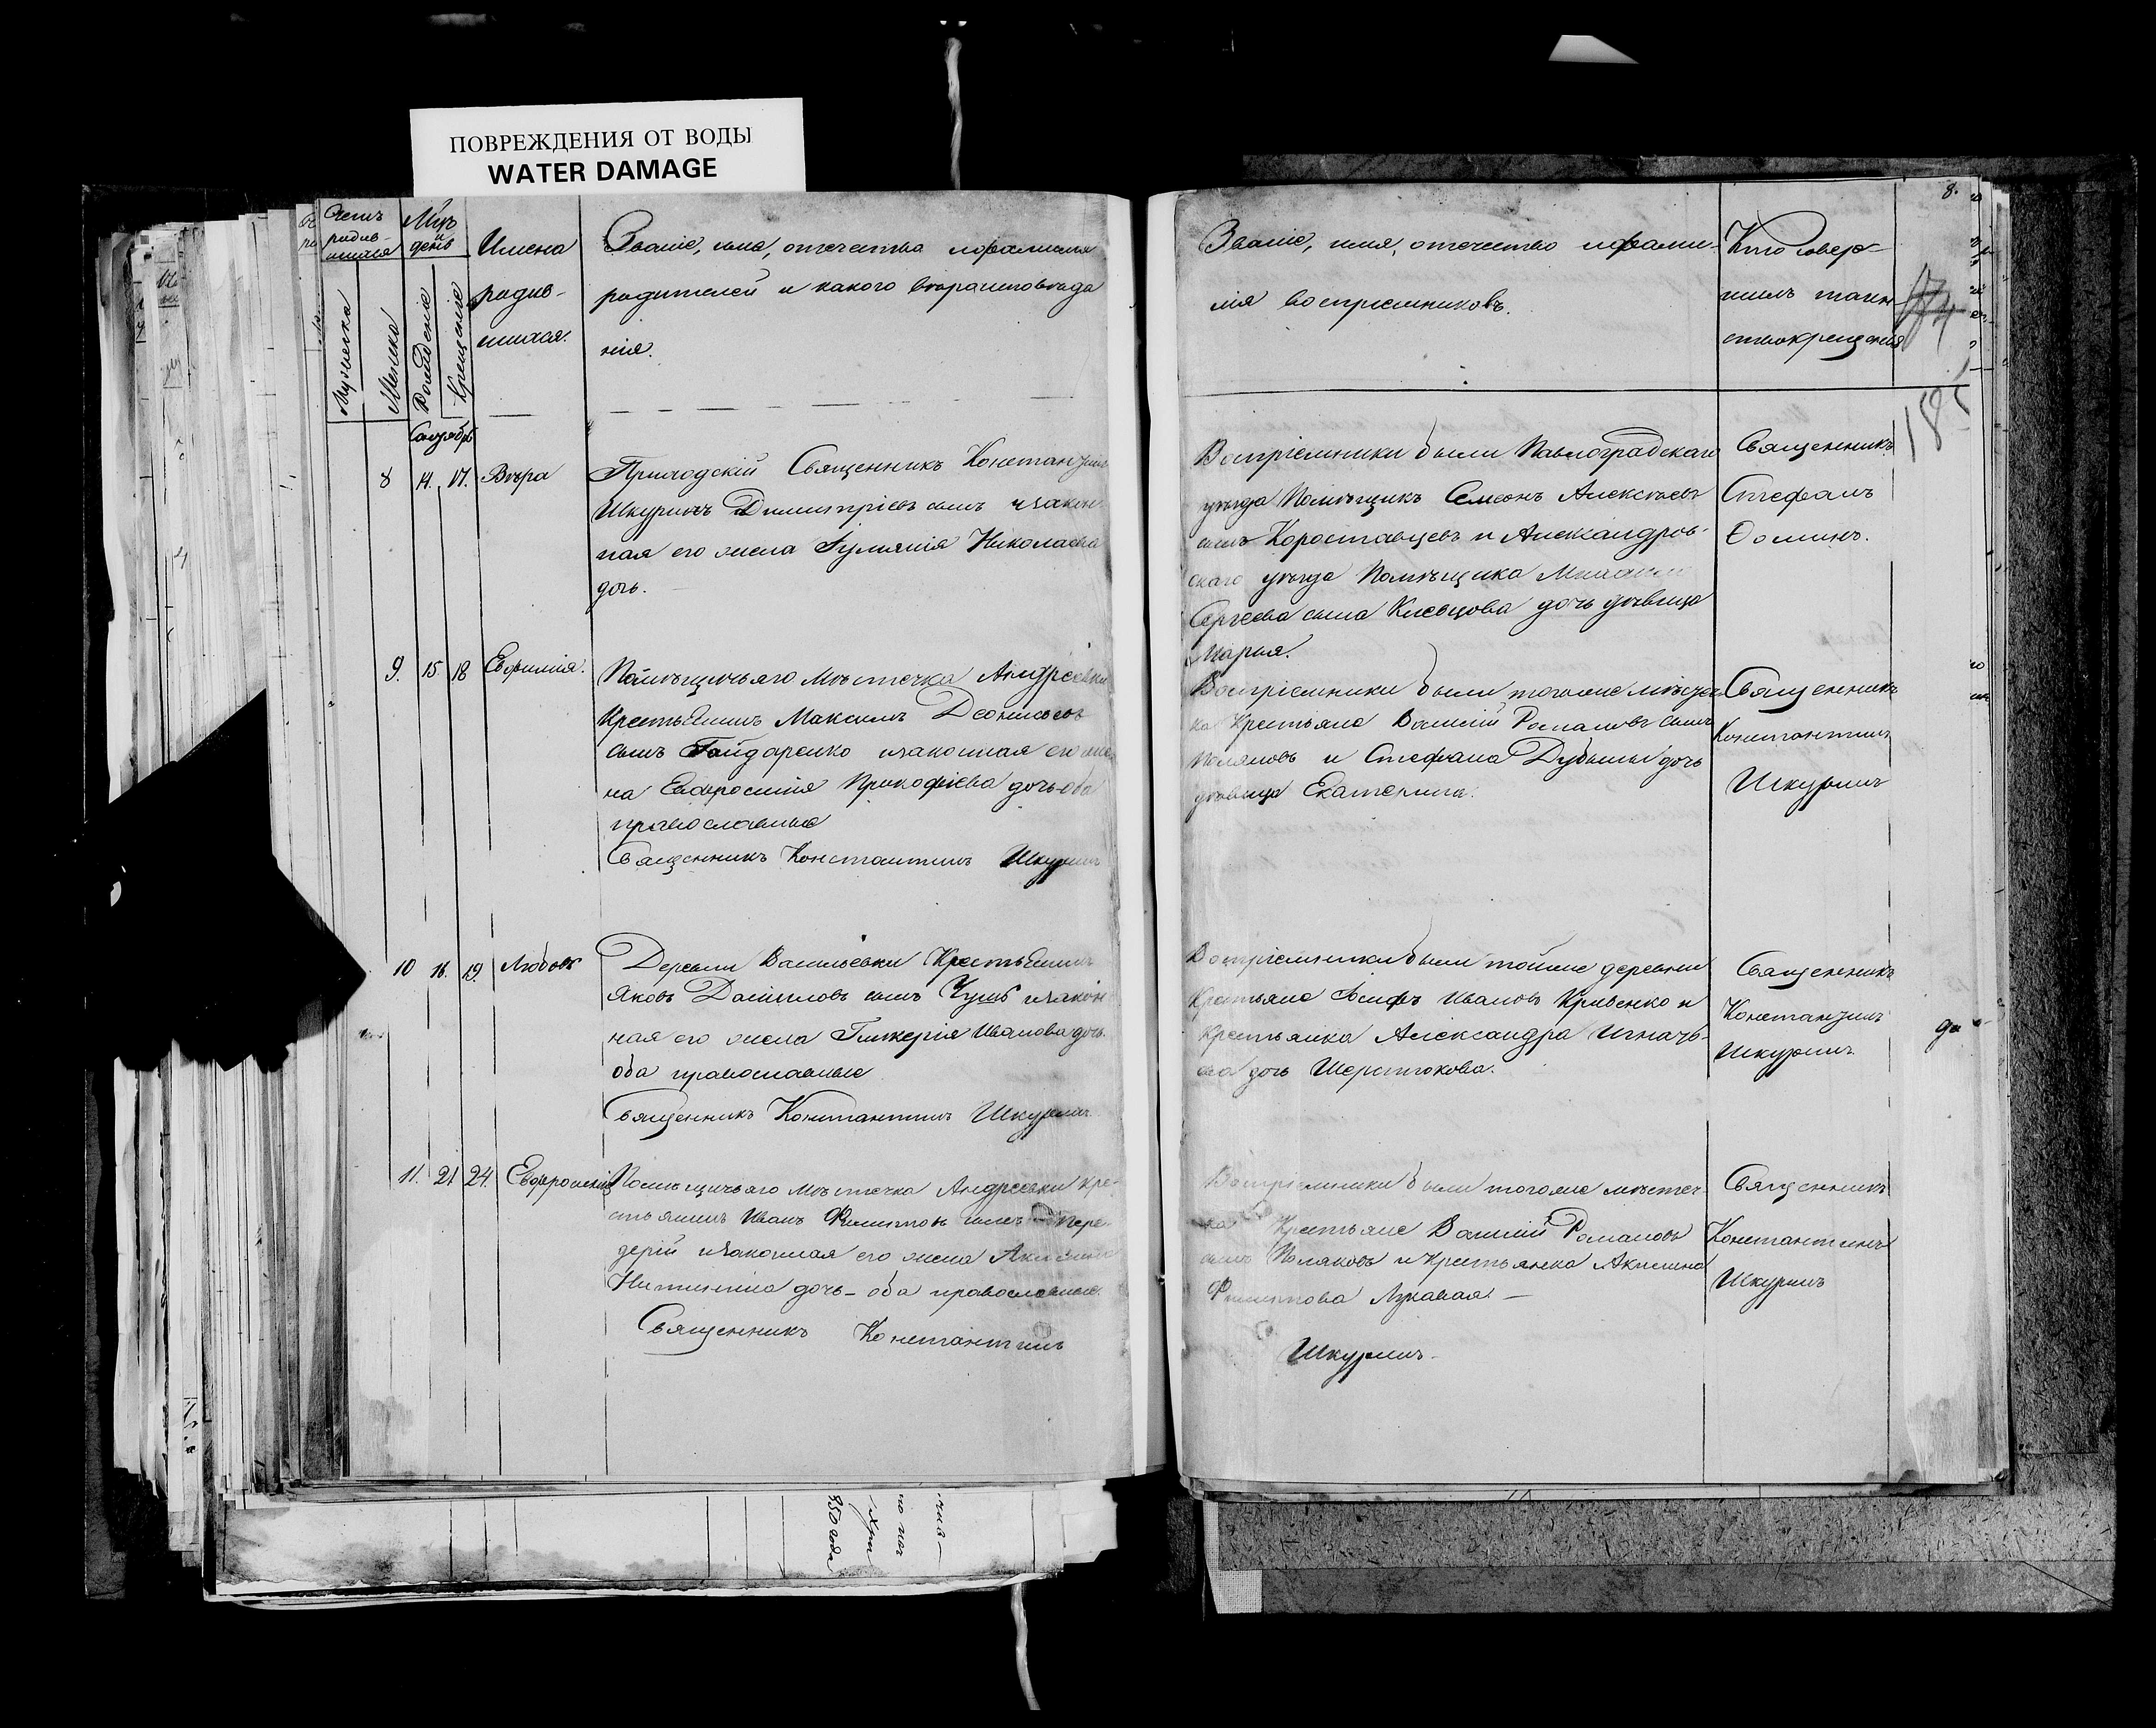 ПОВРЕЖДЕНИЯ ОТ ВОДЫ
WATER DAMAGE
Счетъ
родив-
шихся
Мужеска
Женска
Мцъ
и
день
Рожденіе
Крещеніе
Имена
родив-
шихся.
Званіе, имя, отечество и фамилія
родителей и какого вѣроисповѣда
нія.
8 14. 17. Вѣра
Приходскій Священникъ Константинъ
Шкуринъ Димитріевъ сынъ и закон-
ная его жена Николаева
дочь.
9. 15 18 Евфимія.
Помѣщичьяго мѣстечка Андреевки
Крестьянинъ Максимъ Леонтьевъ
сынъ Гайдаренко и законная его же
на Евфросинія Прокофіева дочь-оба
православные
Священникъ Константинъ Шкуринъ
10 16. 19. Любовь
Деревни Васильевки Крестьянинъ
Яковъ Даниловъ сынъ и закон
ная его жена Гликерія Иванова дочь.
оба православные
Священникъ Константинъ Шкуринъ
11. 21 24. Евфросинія
Помѣщичьяго мѣстечка Андреевки кре-
стьянинъ Иванъ Филиповъ сынъ Пере
дерій и законная его жена
Никитина дочь - оба православные.
Священникъ Константинъ
8.
Званіе, имя, отечество и фами-
лія воспріемниковъ.
Кто совер-
шилъ таин
ство крещенія
185
Воспріемники были Павлоградскаго
уѣзда Помѣщикъ Семенъ Алексѣевъ
сынъ Коростовцевъ и Александров-
скаго уѣзда Помѣщика
Сергѣева сына Клевцова дочь дѣвица
Марья.
Священникъ
Стефанъ
Ѳоминъ.
Воспріемники были тогоже мѣстеч
ка Крестьяне Василій Романовъ сынъ
Поляковъ и Стефана Дубины дочь
дѣвица Екатерина.
Священникъ
Константинъ
Шкуринъ
Воспріемники были тойже деревни
Крестьяне Іосифъ Ивановъ Кривенко и
Крестьянка Александра Игнать-
ева дочь Шерстюкова.
Священникъ
Константинъ
Шкуринъ
Воспріемники были тогоже мѣстеч-
ка Крестьяне Василій Романовъ
сынъ Поляковъ и Крестьянка Акилина
Филипова Луковая. -
Шкуринъ.
Священникъ
Константинъ
Шкуринъ